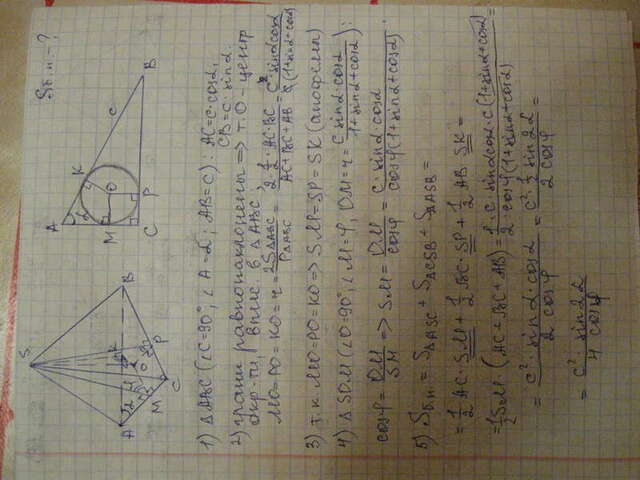 Sб.п. - ?
S
A
B
C
M
K
P
O
A
K
c
B
M
O
C
P
1) △ABC (∠C=90°, ∠A=α; AB=c): AC=c·cosα,
CB=c·sinα.
2) грани равнонаклонены ⇒ т.O - центр
окр-ти, впис. в △ABC;
MO=PO=KO=r= 2S△ABC / P△ABC = 2·½·AC·BC / AC+BC+AB = c² sinα cosα / c(1+sinα+cosα)
3) т.к. MO=PO=KO ⇒ SM=SP=SK (апофемы)
4) △SOM (∠O=90°, ∠M=φ, OM=r= c sinα cosα / 1+sinα+cosα):
cosφ= OM / SM ⇒ SM= OM / cosφ = c sinα cosα / cosφ(1+sinα+cosα).
5) Sб.п. = S△ASC + S△CSB + S△ASB =
= ½ AC·SM + ½ BC·SP + ½ AB·SK =
= ½ SM·(AC+BC+AB) = ½ · c sinα cosα·c(1+sinα+cosα) / cosφ(1+sinα+cosα) =
= c²·sinα·cosα / 2 cosφ = c² ½ sin2α / 2 cosφ =
= c² sin2α / 4 cosφ